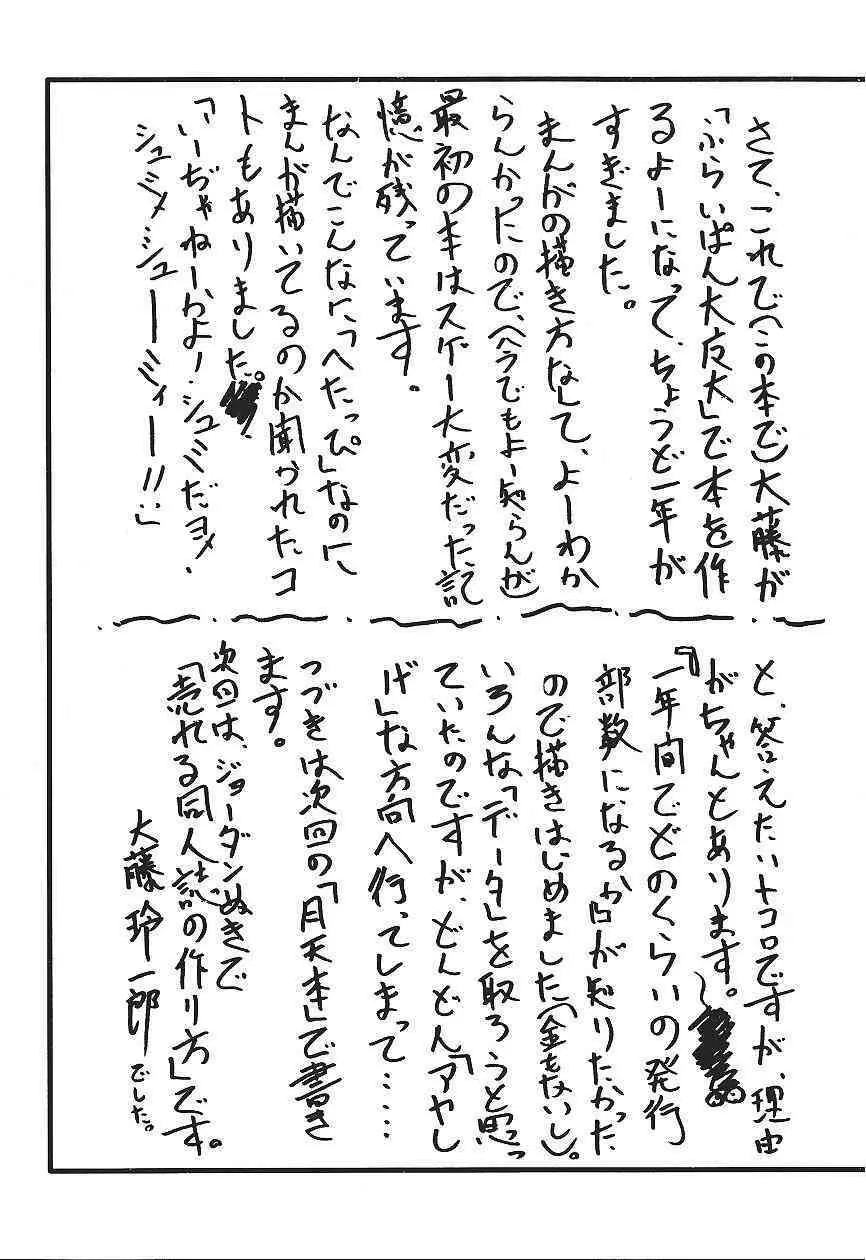 さて、これで(この本で)大藤が
「ふらいぱん大反大」で本を作
るよーになって、ちょうど一年が
すぎました。
まんがの描き方なして、よーわか
らんかったので、(今でもよー知らんが)
最初の本はスゲー大変だった記
憶が残っています。
なんでこんなに「へたっぴ」なのに
まんが描いてるのか聞かれたコ
トもありました。
「いーぢゃねーかよー・シュミだヨ・
シュミ・シューミィー!!」
と、答えたいトコロですが、理由
がちゃんとあります。
『一年間でどのくらいの発行
部数になるか』が知りたかった
ので描きはじめました(金もないし)。
いろんな「データ」を取ろうと思っ
ていたのですが、どんどん「アヤし
げ」な方向へ行ってしまって・・・・
つづきは次回の「月天本」で書き
ます。
次回は、ジョーダンぬきで
「売れる同人誌の作り方」です。
大藤玲一郎でした。